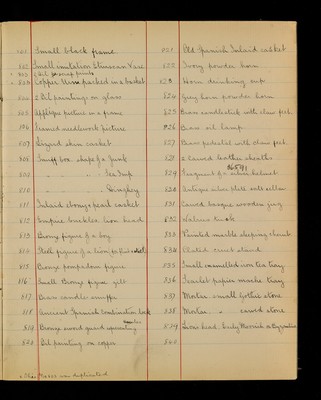 501 Small black frame
502 Small imitation Etruscan Vase
503 2 Oil prints
504 Copper Urn packed in a basket
505 2 Oil paintings on glass
505 Appliqué picture in a frame
506 Framed needlework picture
507 Lizard skin casket
508 Snuff box. shape of a Junk
509 " " " Sea Imp
510 " " " Dinghey
511 Inlaid ebony & pearl casket
512 Empire buckles lion head
513 Bronze figure of a boy
514 figure of a lion
515 Bronze figure
516 Small Bronze figure gilt
517 Brass candle snuffer
518 Ancient Spanish Combination lock
519 Bronze sword guard
520 Oil painting on copper
521 Old Spanish Inlaid casket
522 Ivory powder horn
523 Horn drinking cup
524 Grey horn powder horn
525 Brass candlestick with claw feet
526 Brass oil lamp
527 Brass pedestal with claw feet
528 2 carved leather sheaths
529 Fragment of a helmet
530 Antique silver plate salt cellar
531 Carved baroque wooden
532 Walrus tusk
533 Painted marble sleeping cherub
534 Plated cruet stand
535 Small enamelled iron tea tray
536 Scarlet papier mache tray
537 Mortar small Gothic stone
538 Mortar " carved stone
539 Lions head
540